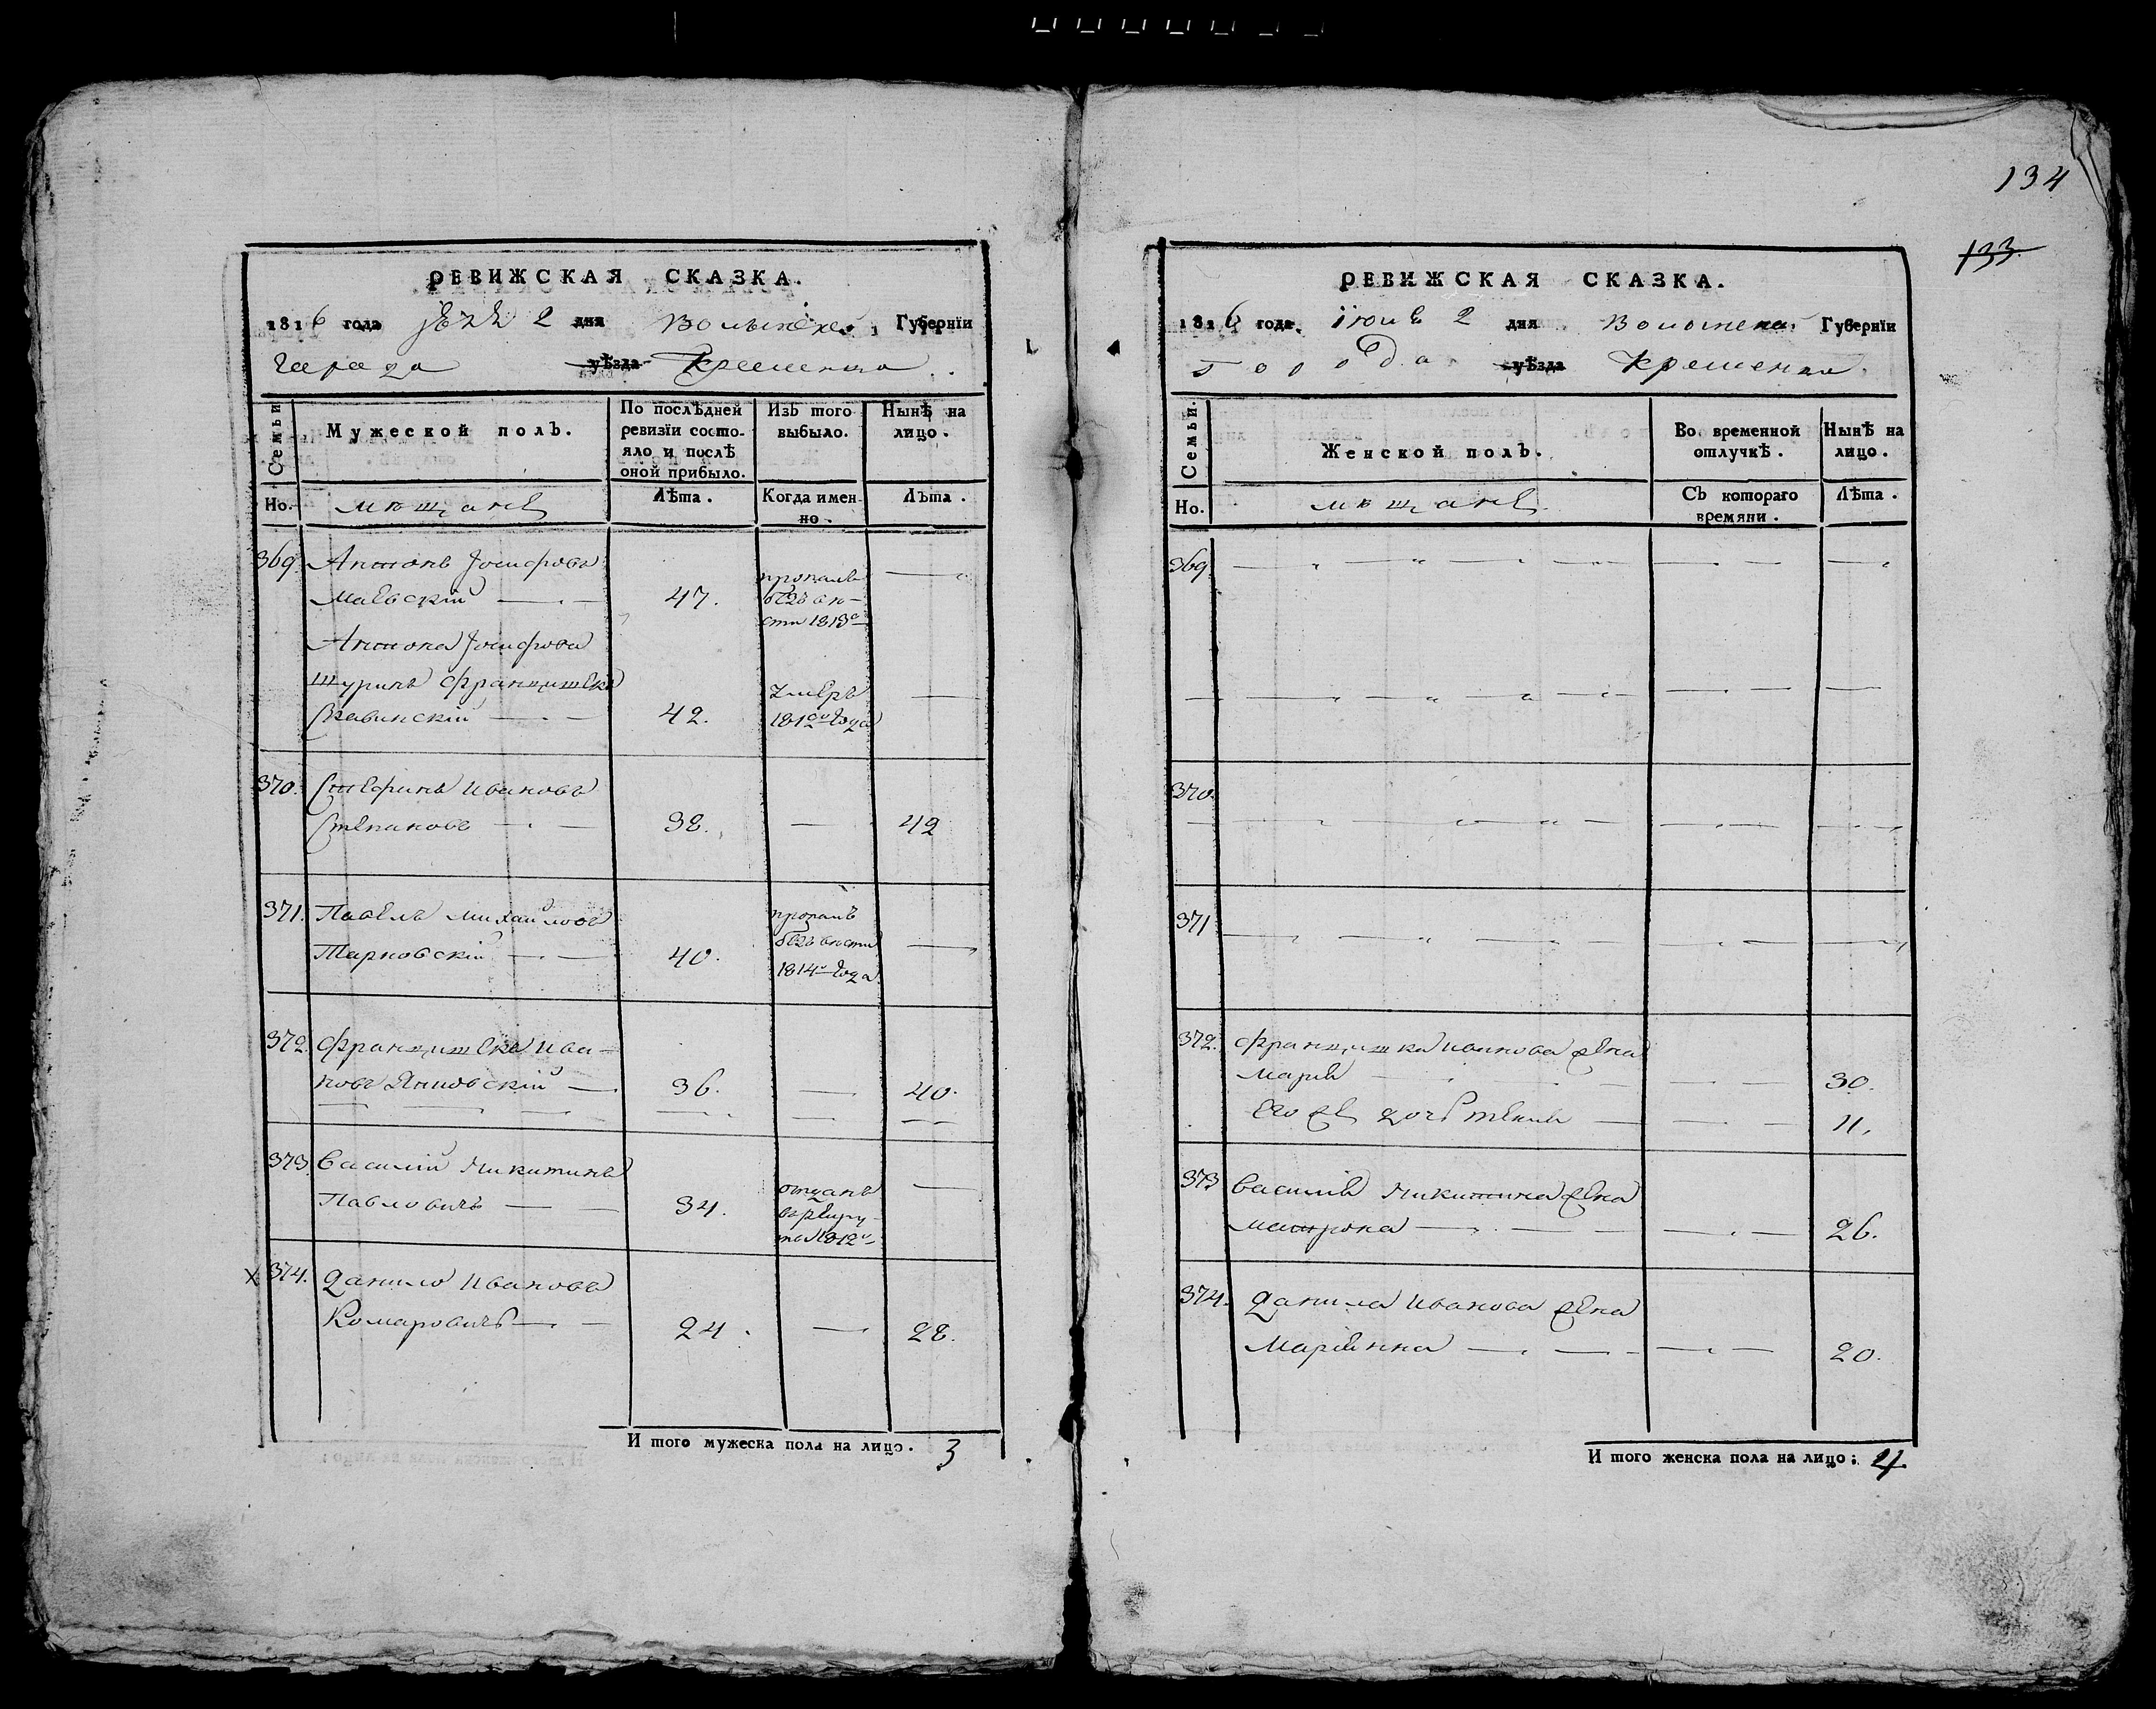 134
133
РЕВИЖСКАЯ СКАЗКА.
1816 года 2 дня Волынской, Губернїи
города уѣзда Кременца
Семьи.
Мужеской полъ.
По послѣдней ревизїи состояло и послѣ оной прибыло.
Изъ того выбыло.
Нынѣ на лицо.
Но.
мѣщане
Лѣта.
Когда именно.
Лѣта.
369. Антонъ Іосифовъ
Маевскій 47. пропалъ безъ вѣсти 1813
Антона Іосифова
шуринъ Францишекъ
42. умеръ 1812 года
370. Ивановъ
Степановъ 38. 42
371. Павелъ Михайловъ
Тарновскій 40. пропалъ безъ вѣсти 1814 года
372. Францишекъ Ива-
новъ Яновскій 36. 40.
373. Василій Никитинъ
Павловичъ 34. отданъ въ рекруты 1812
х 374. Данило Ивановъ
Комаровичъ 24. 28.
И того мужеска пола на лицо. 3
РЕВИЖСКАЯ СКАЗКА.
1816 года. іюня 2 дня Волынской Губернїи
города уѣзда Кременца
Семьи.
Женской полъ.
Во временной отлучкѣ.
Нынѣ на лицо.
Но.
мѣщане
Съ котораго времяни.
Лѣта.
369.
370.
371
372. Францишка Иванова жена
Марія 30.
его же дочь 11.
373 Василія Никитина жена
Матрона 26.
374. Данила Иванова жена
Маріянна 20.
И того женска пола на лицо: 4